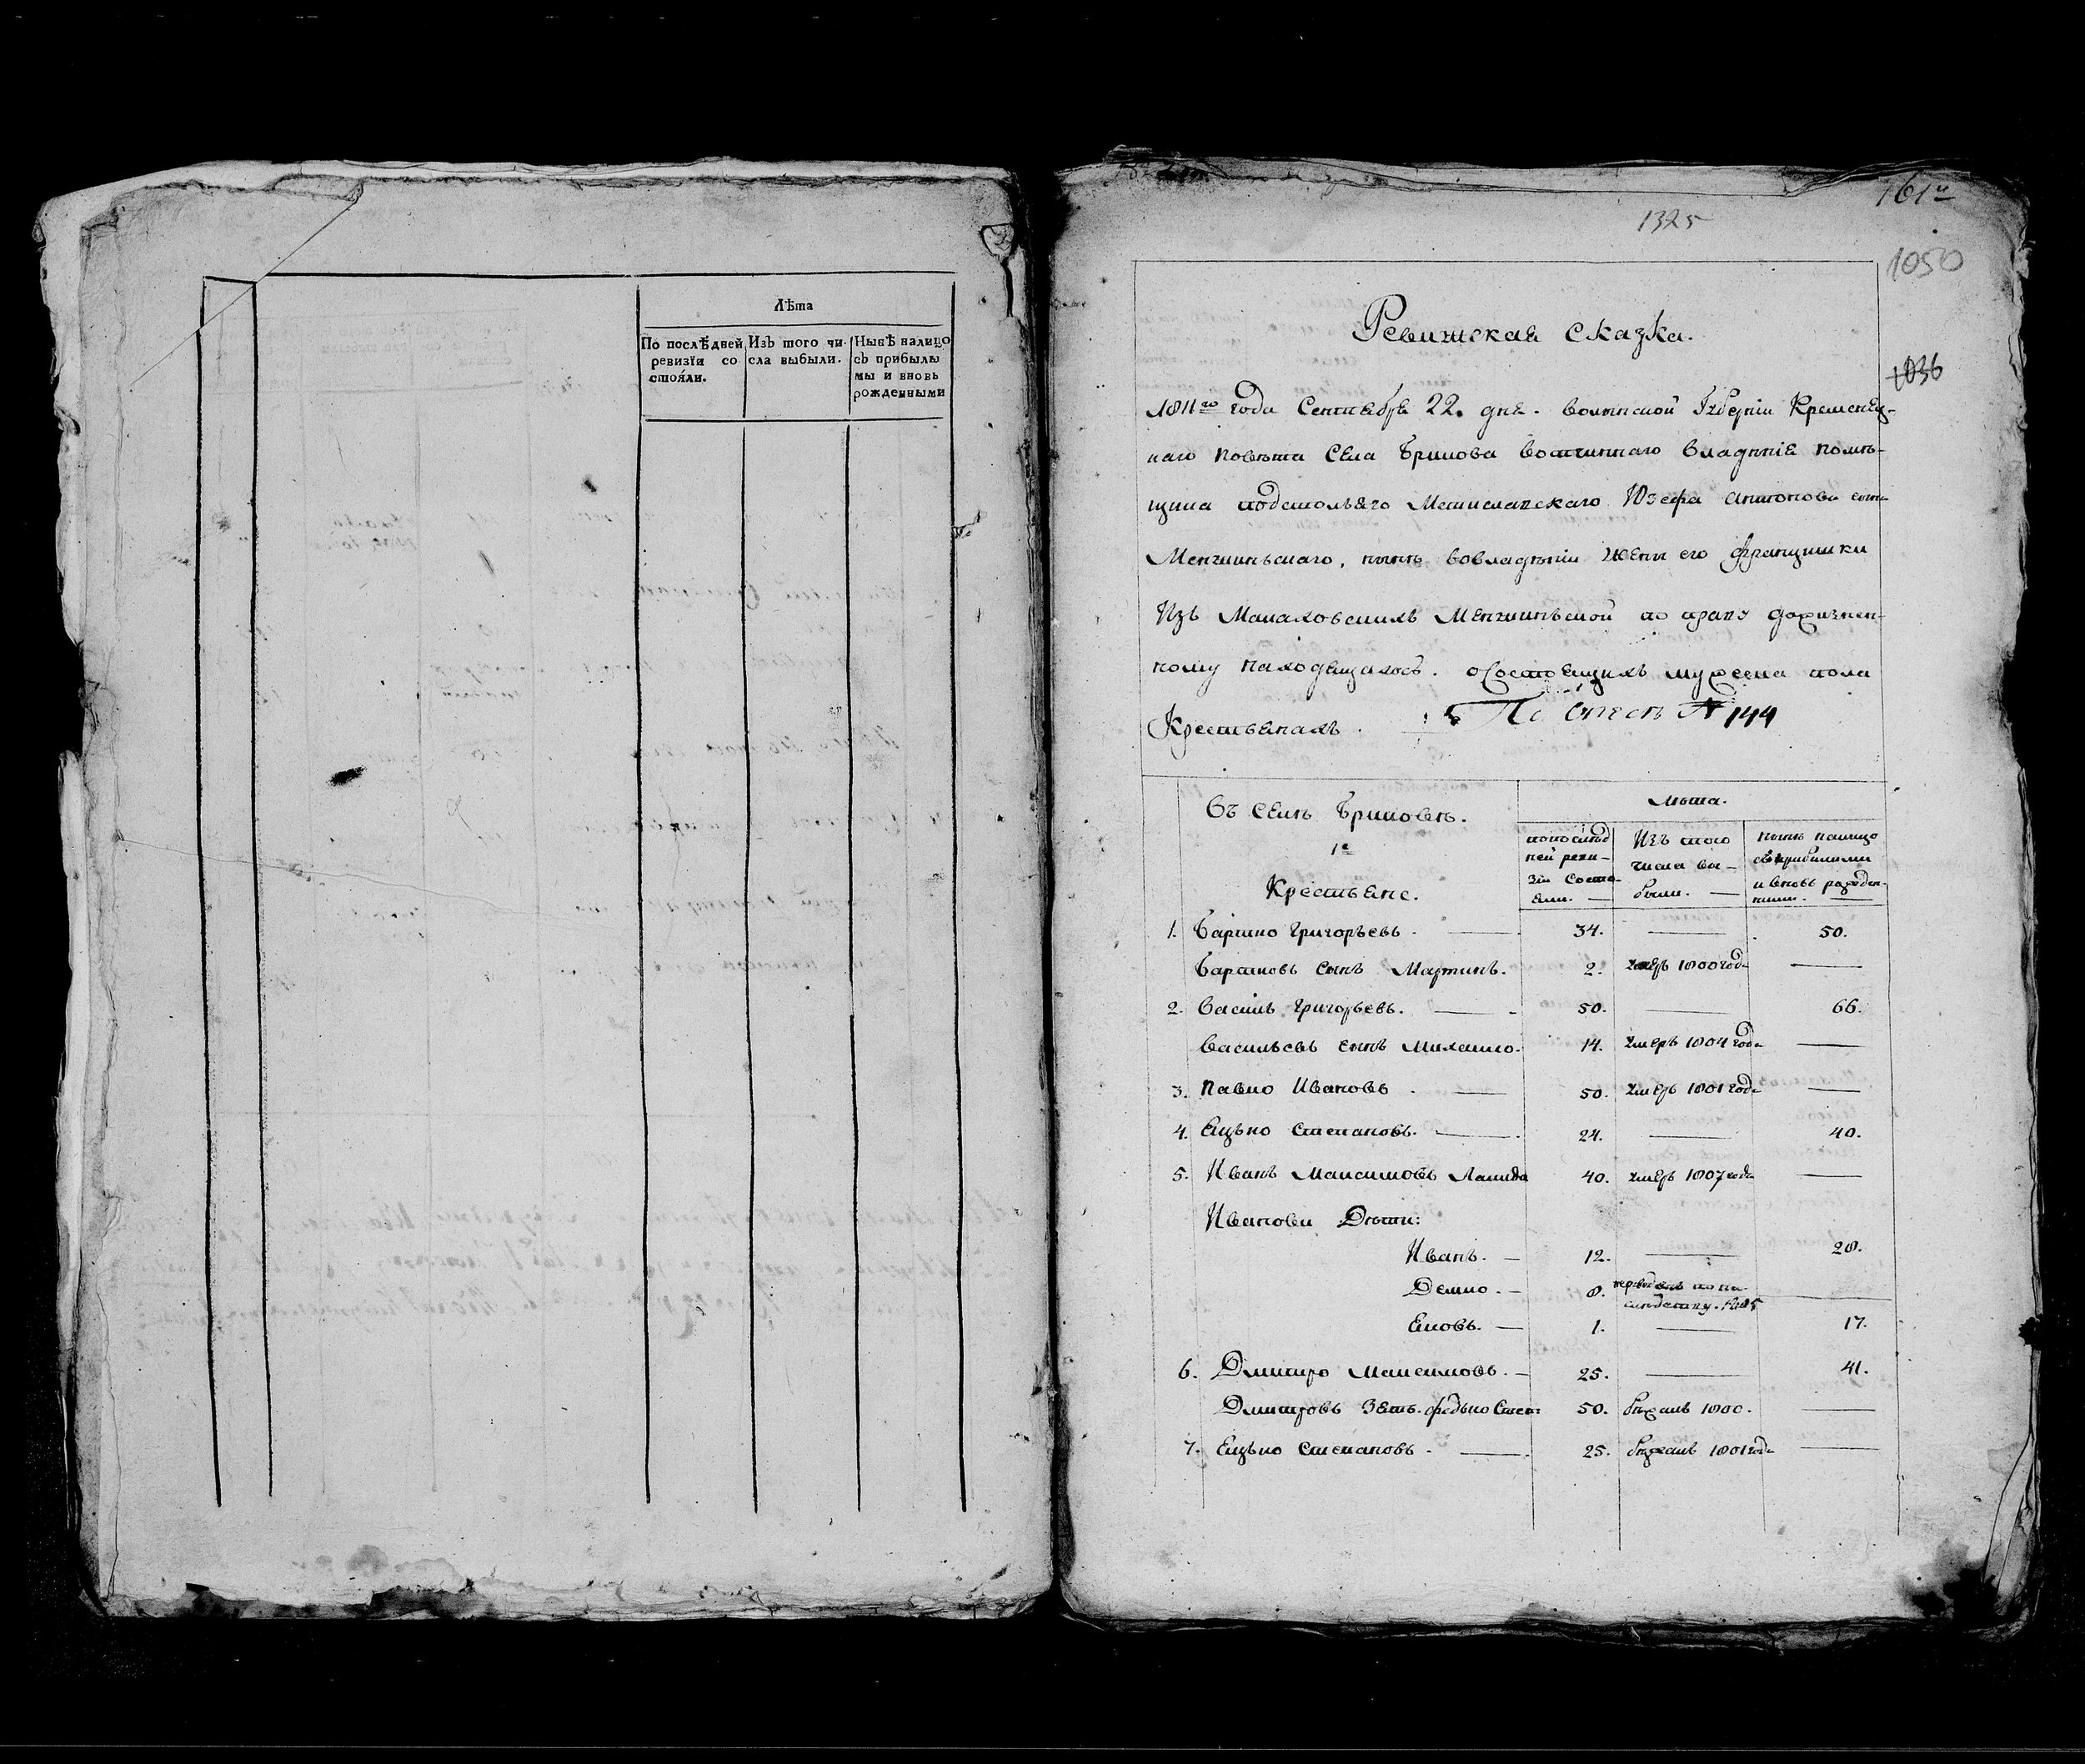 Лѣта
По послѣдней ревизїи состояли.
Изъ того числа выбыли.
Нынѣ налицо съ прибылымы и вновь рожденными
161
1325
1050
1036
Ревижская сказка.
1811го года Сентебря 22. дня. волынской Губерніи Кременец-
каго повѣта Села Брикова вотчиннаго владѣніе помѣ-
щика подстолѣго Мстиславскаго Юзефа антонова сына
Менчинъскаго, нынѣ вовладѣніи жены его францишки
Изъ Малаховскихъ Менчинъской по праву дожизнен-
ному находящихсѣ. о Состоещихъ мужеска пола
Крестьенахъ. По описи № 144
Въ Селѣ Бриковѣ.
1е
Крестьяне.
Лѣта.
попослѣдней ревизіи Состоели.
Изъ того числа выбыли.
нынѣ налицо съ прибилими и вновь рожденними.
1. Григорьевъ. 34. 50.
сынъ Мартинъ. 2. умеръ 1800 года
2. Василь Григорьевъ. 50. 66.
Васильевъ сынъ Михайло. 14. умеръ 1804 года
3. Павло Ивановъ 50. умеръ 1801 года
4. Ицько Степановъ. 24. 40.
5. Иванъ Максимовъ 40. умеръ 1807 года
Ивановы Дѣти:
Иванъ. 12. 28.
Демко. 8.
Яковъ. 1. 17.
6. Дмитро Максимовъ. 25. 41.
Дмитровъ Зеть федько Степ: 50. бѣжалъ 1800.
7. Ицько Степановъ. 25. бѣжалъ 1801 года